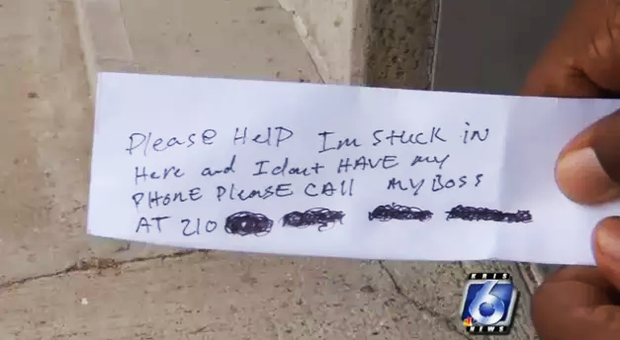 Please HelP Im Stuck in
Here and I dont HAVE my
PHONE Please CAll MY BOSS
AT 210
KRIS
6
NEWS